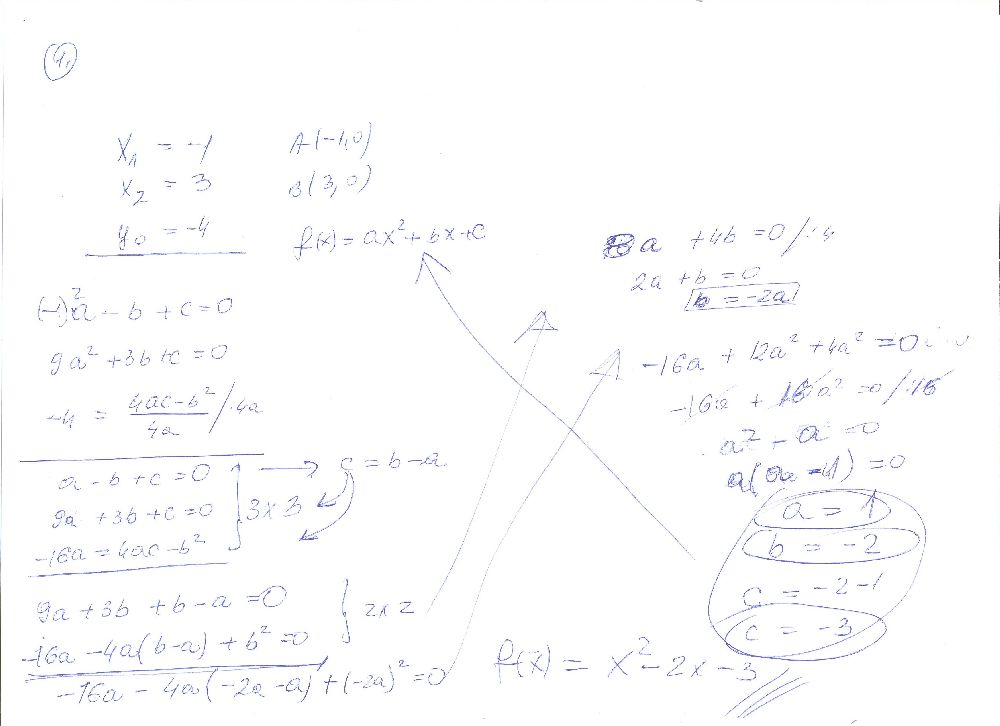 4.
x₁ = -1 A(-1,0)
x₂ = 3 B(3,0)
y₀ = -4 f(x) = ax² + bx + c
(-1)²a - b + c = 0
9a² + 3b + c = 0
-4 = (4ac-b²)/4a /·4a
a - b + c = 0 → c = b - a
9a + 3b + c = 0 } 3x3
-16a = 4ac - b²
9a + 3b + b - a = 0 } 2x2
-16a - 4a(b-a) + b² = 0
-16a - 4a(-2a-a) + (-2a)² = 0
8a + 4b = 0 /:4
2a + b = 0
b = -2a
-16a + 12a² + 4a² = 0
-16a + 16a² = 0 /:16
a² - a = 0
a(a-1) = 0
a = 1
b = -2
c = -2-1
c = -3
f(x) = x² - 2x - 3